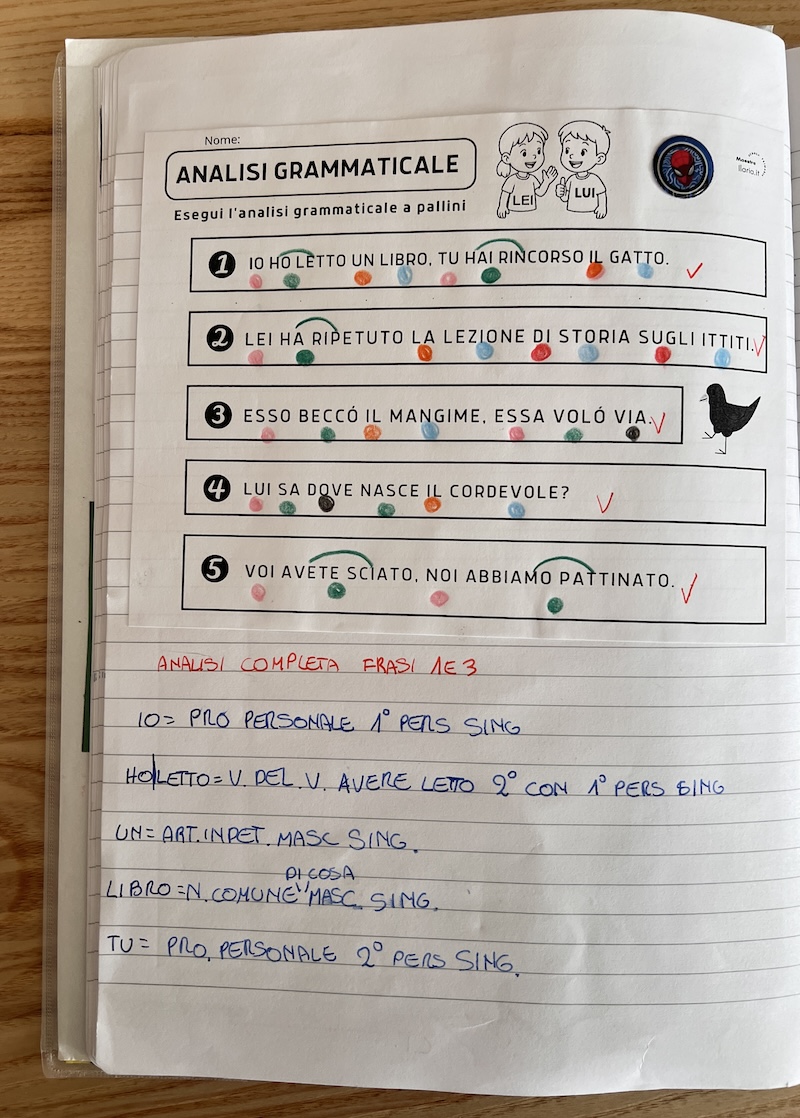 Nome:
ANALISI GRAMMATICALE
Esegui l'analisi grammaticale a pallini
LEI
LUI
Maestro
Ilario.it
1 IO HO LETTO UN LIBRO, TU HAI RINCORSO IL GATTO.
2 LEI HA RIPETUTO LA LEZIONE DI STORIA SUGLI ITTITI.
3 ESSO BECCÓ IL MANGIME, ESSA VOLÓ VIA.
4 LUI SA DOVE NASCE IL CORDEVOLE?
5 VOI AVETE SCIATO, NOI ABBIAMO PATTINATO.
ANALISI COMPLETA FRASI 1 E 3
IO= PRO PERSONALE 1° PERS SING
HO|LETTO= V. DEL. V. AVERE LETTO 2° CON 1° PERS SING
UN= ART. INDET. MASC SING.
DI COSA
LIBRO=N. COMUNE MASC. SING.
TU= PRO. PERSONALE 2° PERS SING.